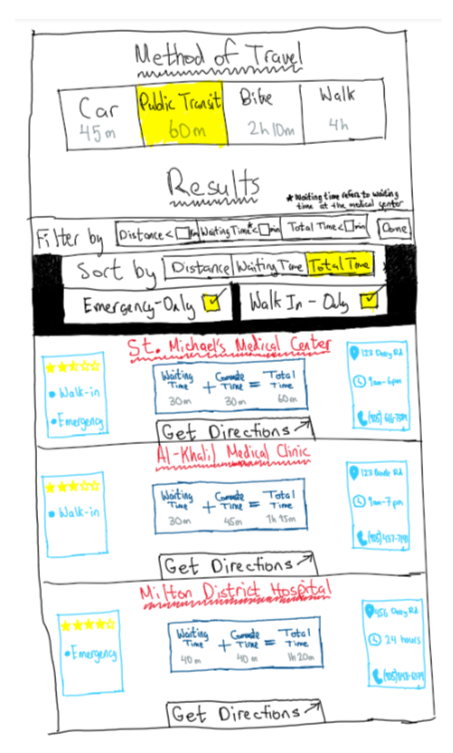 Method of Travel
Car Public Transit Bike Walk
45m 60m 2h 10m 4h
Results
* Waiting time refers to waiting
time at the medical center
Filter by Distance < km Waiting Time* < min Total Time < min Done
Sort by Distance Waiting Time Total Time
Emergency-Only Walk In - Only
St. Michael's Medical Center
• Walk-in
• Emergency
Waiting Time + Commute Time = Total Time
30m 30m 60m
9am-6pm
Get Directions
Al-Khalil Medical Clinic
• Walk-in
Waiting Time + Commute Time = Total Time
30m 45m 1h 15m
9am-7pm
Get Directions
Milton District Hospital
• Emergency
Waiting Time + Commute Time = Total Time
40m 40m 1h 20m
24 hours
Get Directions